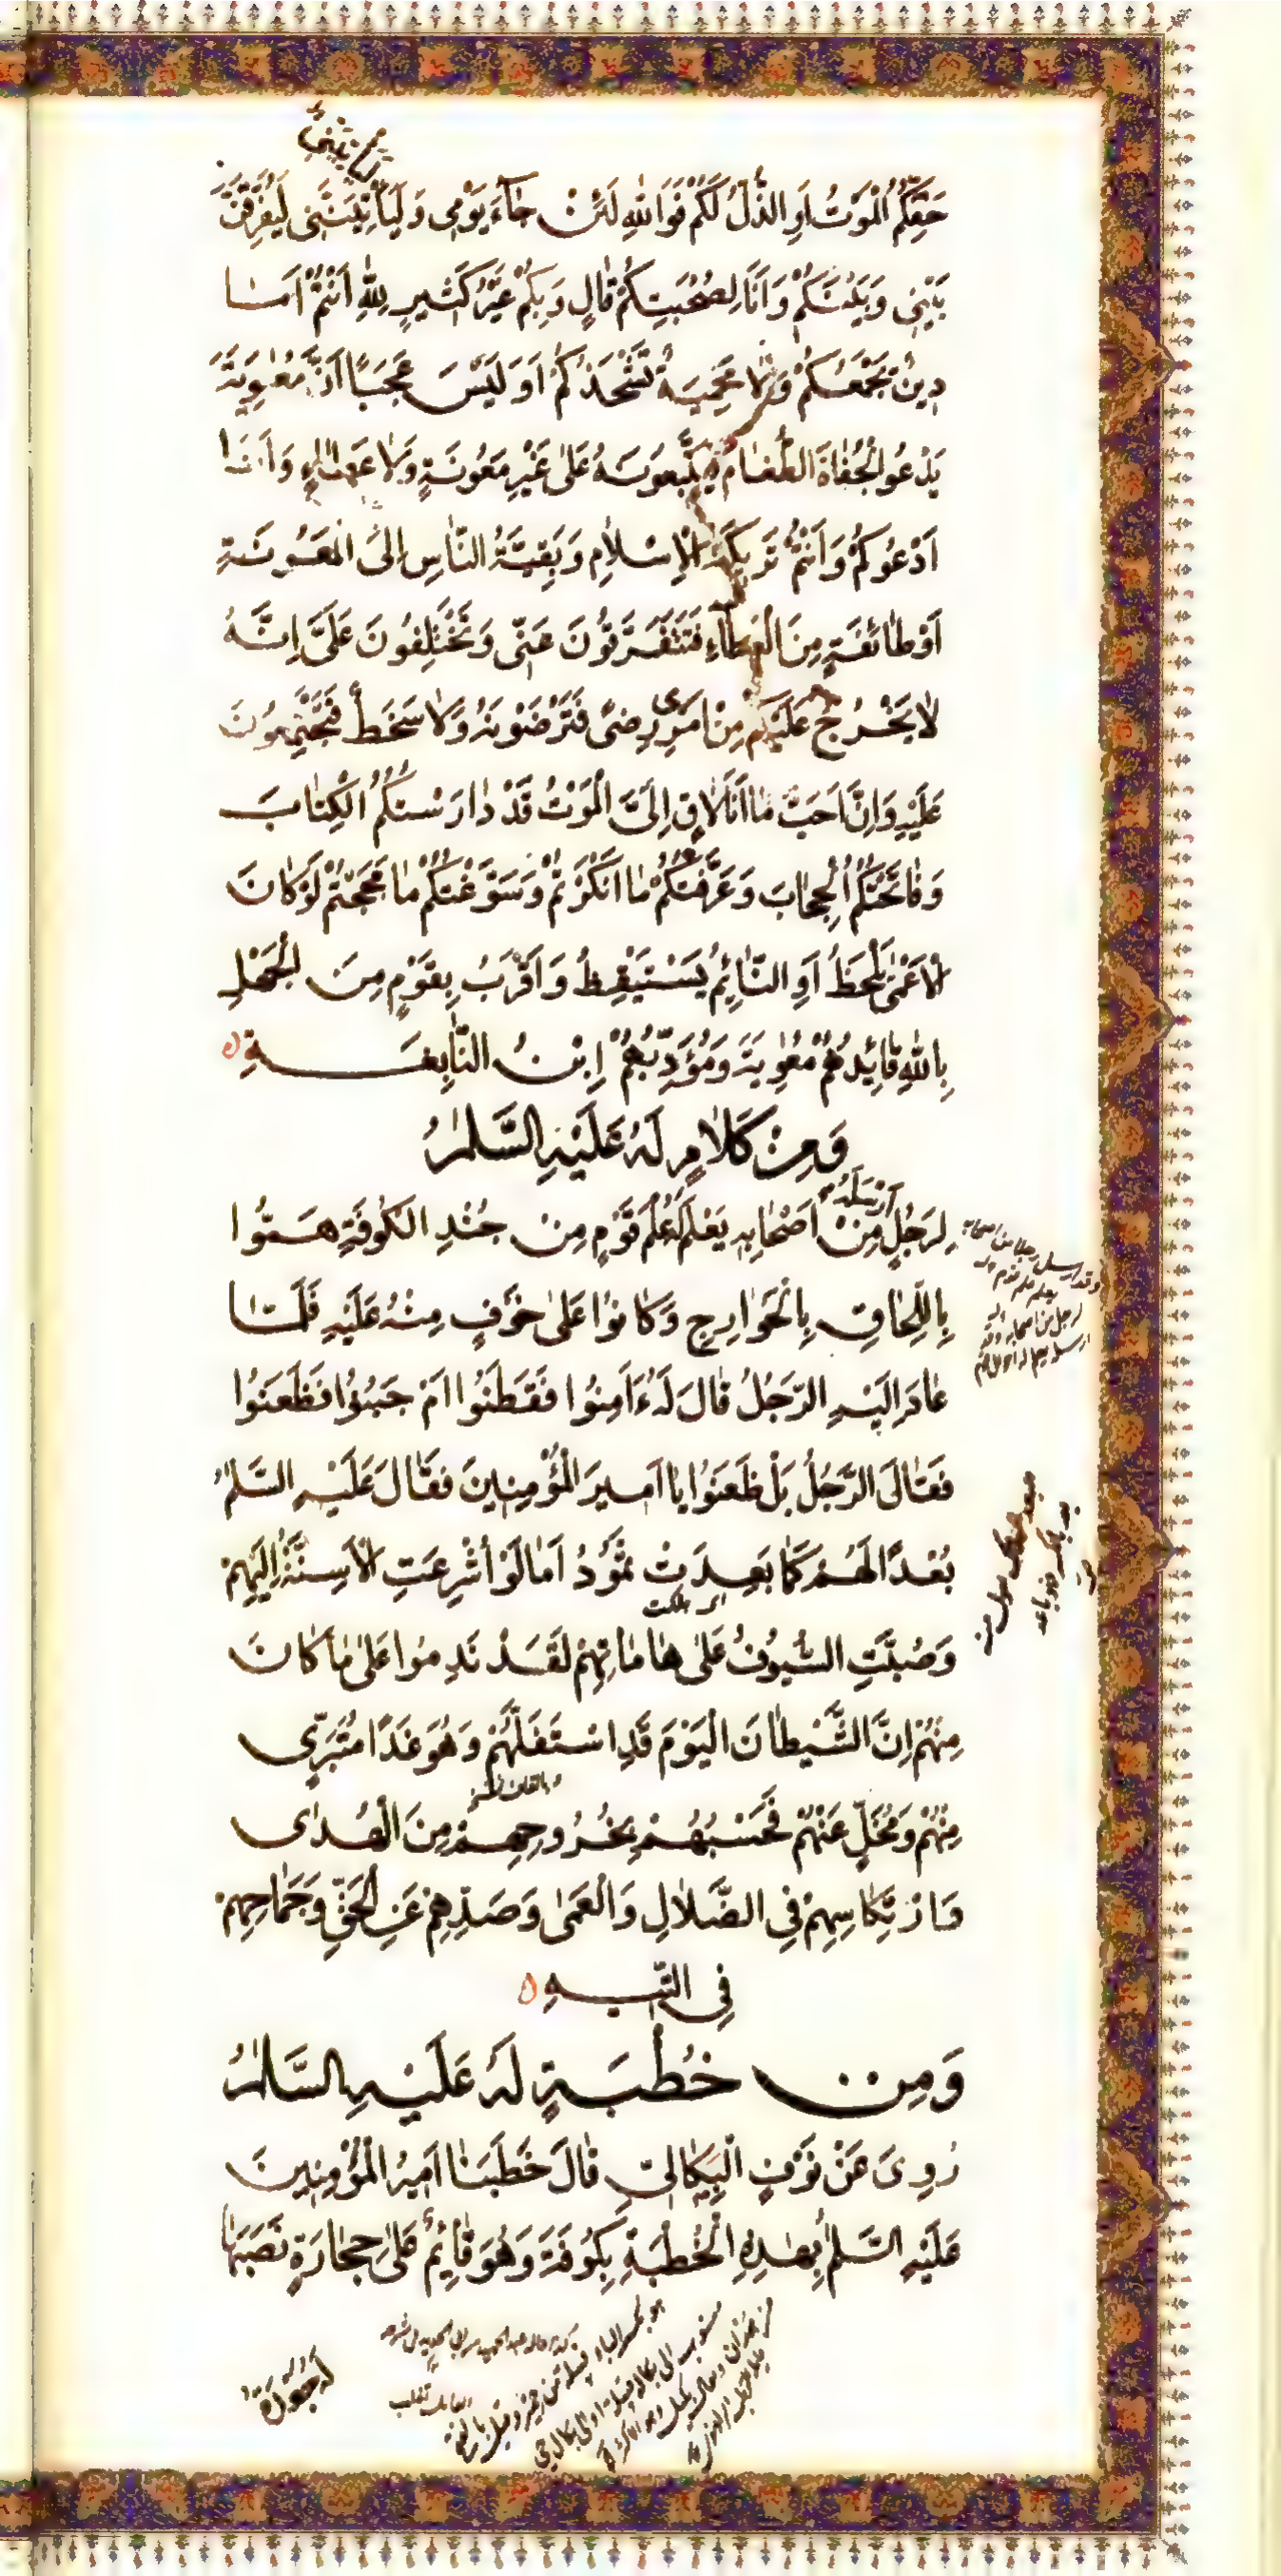 حَقِّكُمُ الْمَوْتُ اَوِ الذُّلُّ لَكُمْ فَوَاللّٰهِ لَئِنْ جَآءَ يَوْمِى وَلَيَأْتِيَنَّنِى لَيُفَرِّقَنَّ
بَيْنِى وَبَيْنَكُمْ وَاَنَا لِصُحْبَتِكُمْ قَالٍ وَبِكُمْ غَيْرُ كَثِيرٍ لِلّٰهِ اَنْتُمْ اَمَا
دِينٌ يَجْمَعُكُمْ وَلَا مَحْمِيَةٌ تَشْحَذُكُمْ اَوَلَيْسَ عَجَبًا اَنَّ مُعٰوِيَةَ
يَدْعُو الْجُفَاةَ الطَّغَامَ فَيَتَّبِعُونَهُ عَلٰى غَيْرِ مَعُونَةٍ وَلَا عَطَاءٍ وَاَنَا
اَدْعُوكُمْ وَاَنْتُمْ تَرِيكَةُ الْاِسْلَامِ وَبَقِيَّةُ النَّاسِ اِلَى الْمَعُونَةِ
اَوْ طَائِفَةٍ مِنَ الْعَطَآءِ فَتَتَفَرَّقُونَ عَنِّى وَتَخْتَلِفُونَ عَلَىَّ اِنَّهُ
لَا يَخْرُجُ عَلَيْكُمْ مِنْ اَمْرِى رِضًى فَتَرْضَوْنَهُ وَلَا سَخَطٌ فَتَجْتَمِعُونَ
عَلَيْهِ وَاِنَّ اَحَبَّ مَا اَنَا لَاقٍ اِلَىَّ الْمَوْتُ قَدْ دَارَسْتُكُمُ الْكِتَابَ
وَفَاتَحْتُكُمُ الْحِجَابَ وَعَرَّفْتُكُمْ مَا اَنْكَرْتُمْ وَسَوَّغْتُكُمْ مَا مَجَجْتُمْ لَوْ كَانَ
الْاَعْمٰى يَلْحَظُ اَوِ النَّائِمُ يَسْتَيْقِظُ وَاَقْرَبُ بِقَوْمٍ مِنَ الْجَهْلِ
بِاللّٰهِ قَائِدُهُمْ مُعٰوِيَةَ وَمُؤَدِّبُهُمْ اِبْنُ النَّابِغَةِ
وَمِنْ كَلَامٍ لَهُ عَلَيْهِ السَّلَامُ
اَرْسَلَهُ
لِرَجُلٍ مِنْ اَصْحَابِهِ يَعْلَمُ لَهُ عِلْمَ قَوْمٍ مِنْ جُنْدِ الْكُوفَةِ هَمُّوا
بِاللِّحَاقِ بِالْخَوَارِجِ وَكَانُوا عَلٰى خَوْفٍ مِنْهُ عَلَيْهِ فَلَمَّا
عَادَ اِلَيْهِ الرَّجُلُ قَالَ لَهُ ءَاَمِنُوا فَقَطَنُوا اَمْ جَبُنُوا فَظَعَنُوا
فَقَالَ الرَّجُلُ بَلْ ظَعَنُوا يَا اَمِيرَ الْمُؤْمِنِينَ فَقَالَ عَلَيْهِ السَّلَمُ
بُعْدًا لَهُمْ كَمَا بَعِدَتْ ثَمُودُ اَمَا لَوْ اُشْرِعَتِ الْاَسِنَّةُ اِلَيْهِمْ
وَصُبَّتِ السُّيُوفُ عَلٰى هَامَاتِهِمْ لَقَدْ نَدِمُوا عَلٰى مَا كَانَ
مِنْهُمْ اِنَّ الشَّيْطَانَ الْيَوْمَ قَدِ اسْتَفَلَّهُمْ وَهُوَ غَدًا مُتَبَرِّى
مِنْهُمْ وَمُخَلٍّ عَنْهُمْ فَحَسْبُهُمْ بِخُرُوجِهِمْ مِنَ الْهُدٰى
وَارْتِكَاسِهِمْ فِى الضَّلَالِ وَالْعَمٰى وَصَدِّهِمْ عَنِ الْحَقِّ وَجِمَاحِهِمْ
فِى التِّيهِ
وَمِنْ خُطْبَةٍ لَهُ عَلَيْهِ السَّلَامُ
رُوِىَ عَنْ نَوْفٍ الْبِكَالِىِّ قَالَ خَطَبَنَا اَمِيرُ الْمُؤْمِنِينَ
عَلَيْهِ السَّلَمُ بِهٰذِهِ الْخُطْبَةِ بِكُوفَةَ وَهُوَ قَائِمٌ عَلٰى حِجَارَةٍ نَصَبَهَا
لَهُ جَعْدَةُ